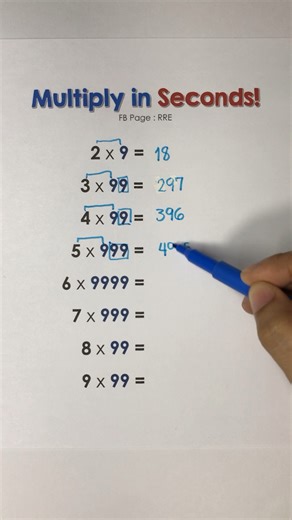 Multiply in Seconds!
FB Page : RRE
2 x 9 = 18
3 x 99 = 297
4 x 99 = 396
5 x 999 =
6 x 9999 =
7 x 999 =
8 x 99 =
9 x 99 =